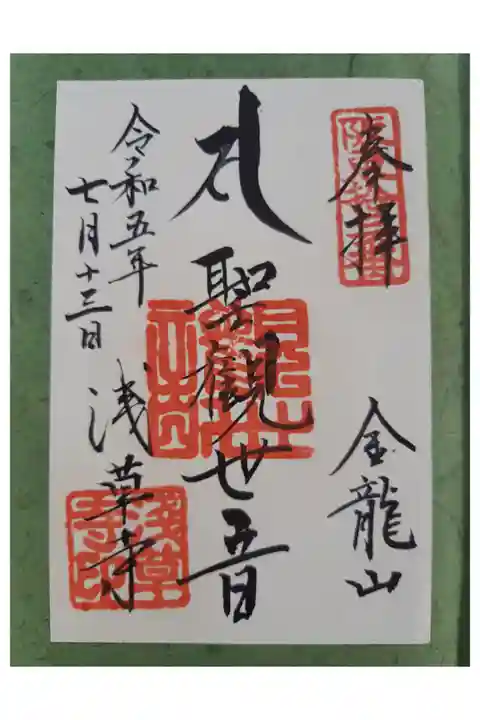 奉拝
金龍山
聖観世音
浅草寺
令和五年
七月十三日
浅草
寺印